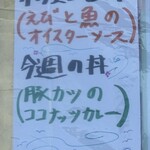 (えびと魚の
オイスターソース)
今週の丼
(豚カツの
ココナッツカレー)